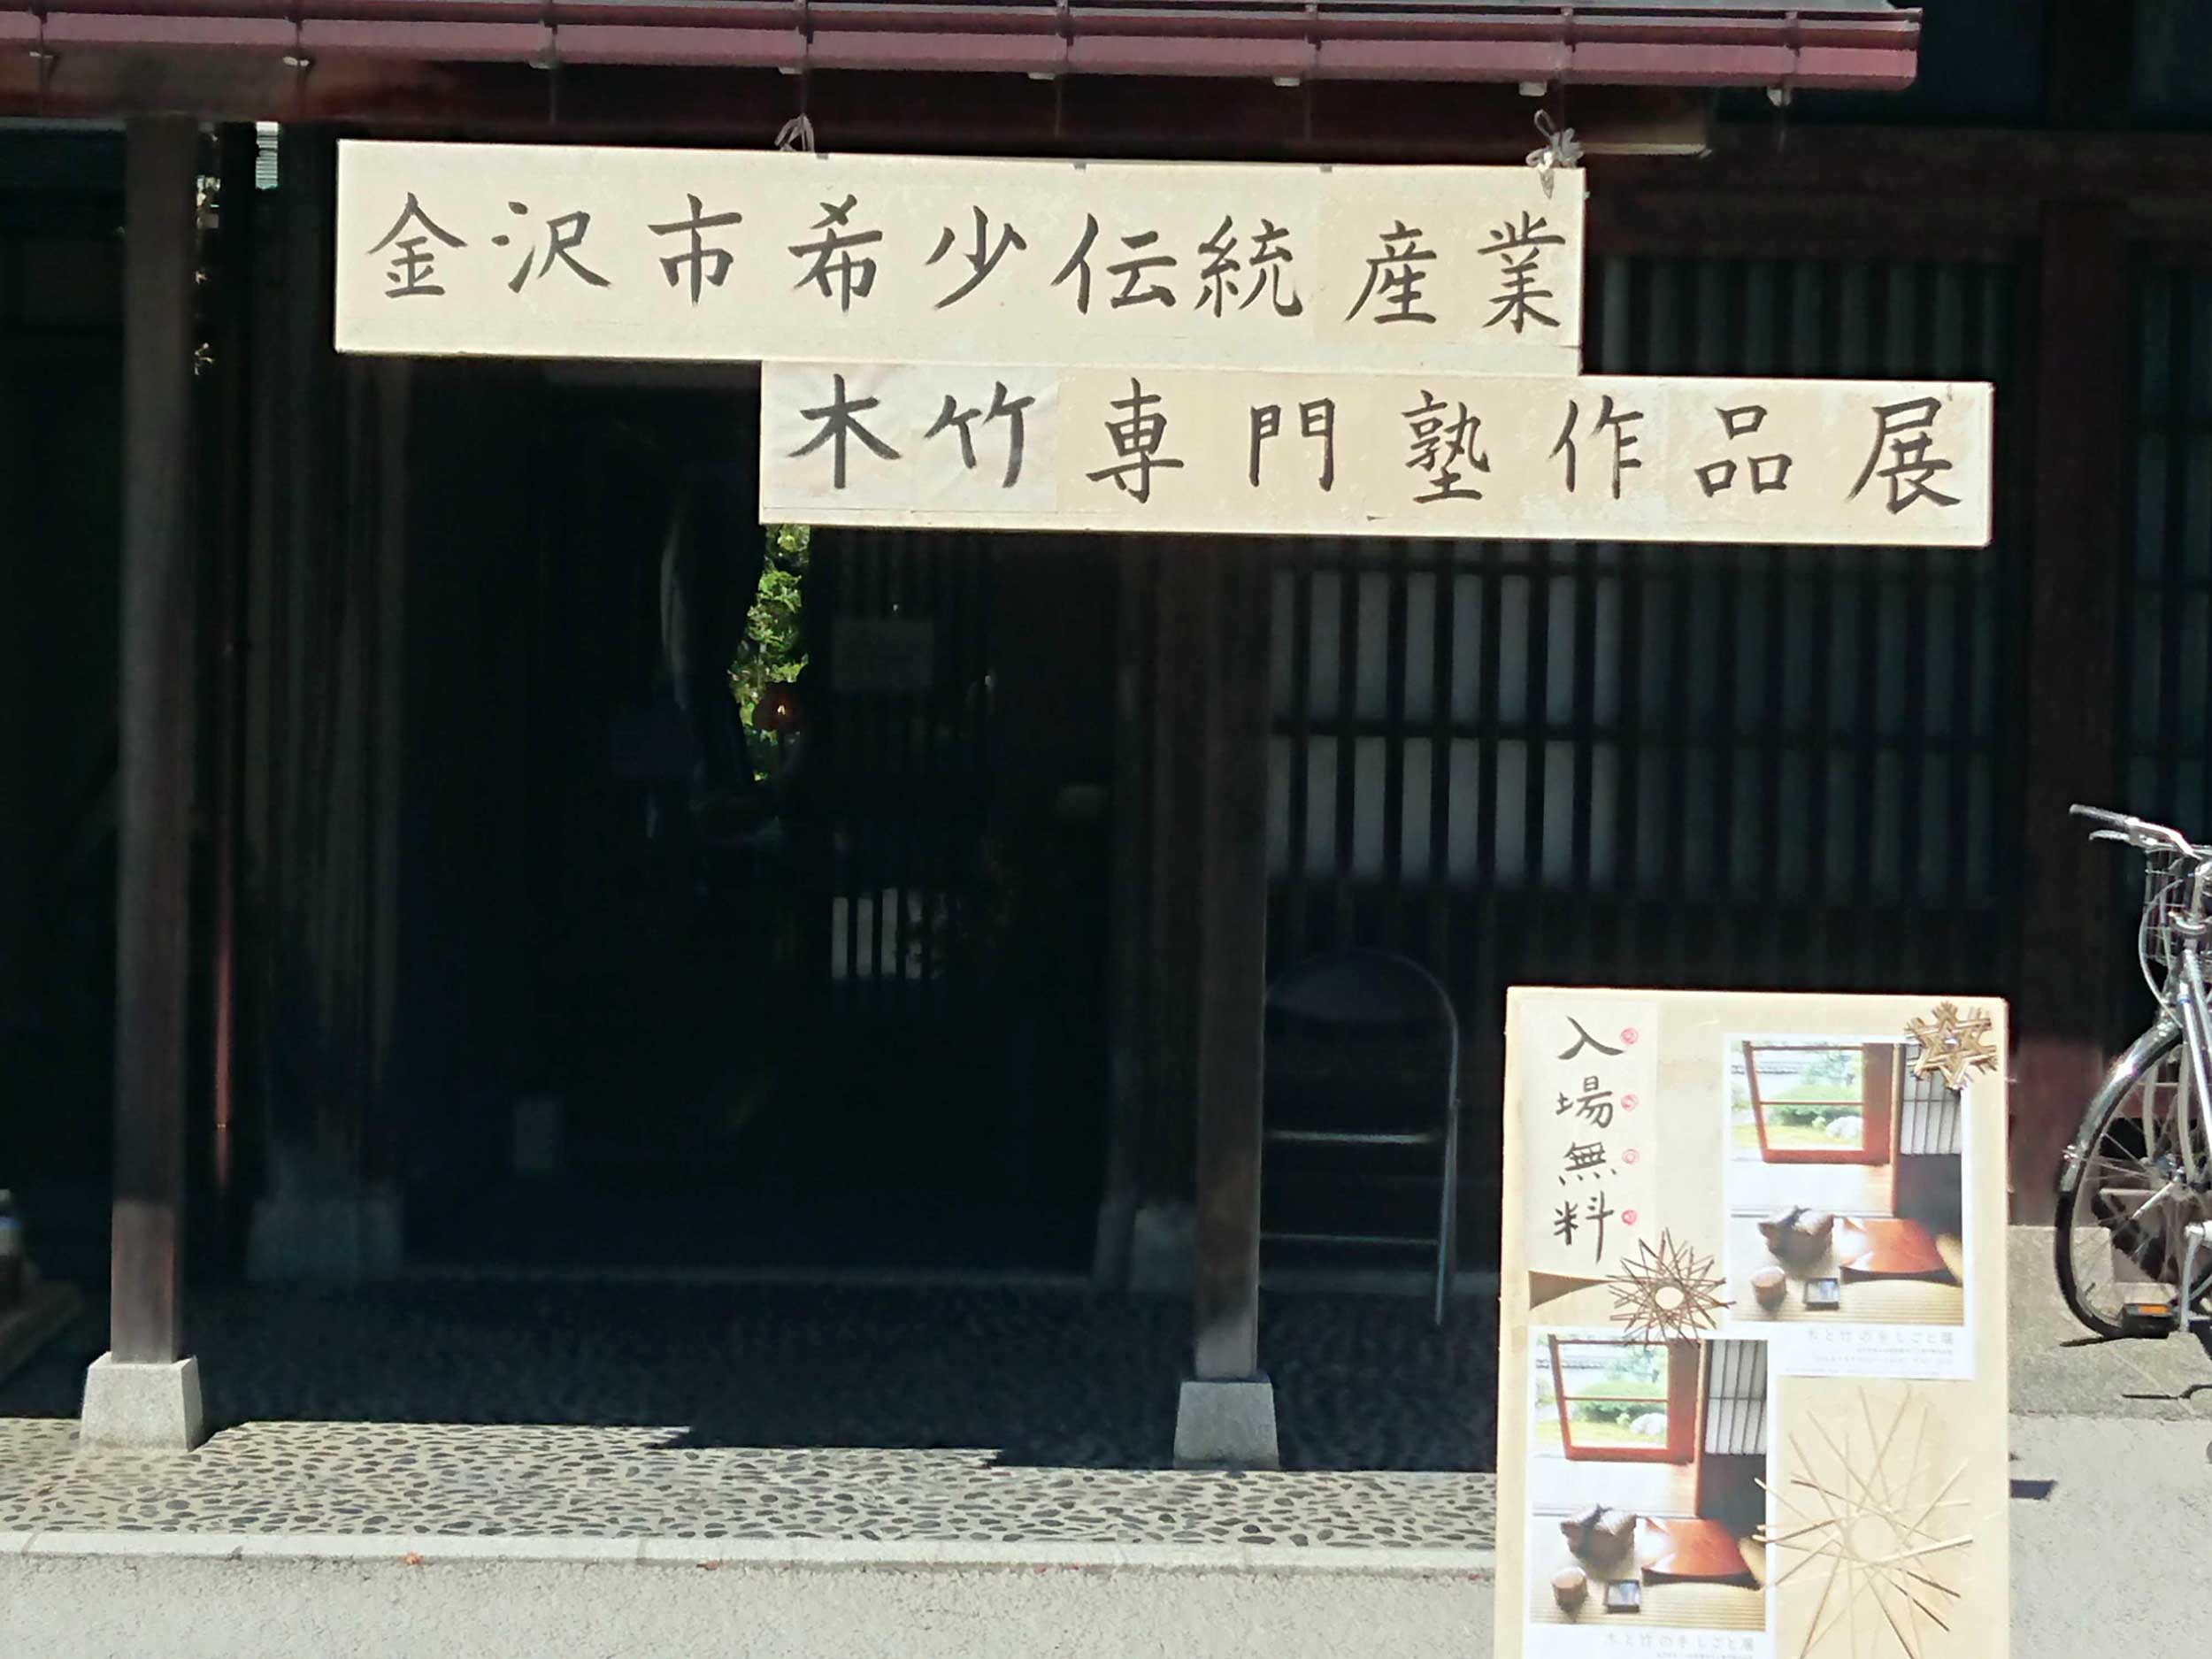 金沢市希少伝統産業
木竹専門塾作品展
入場無料
木と竹の手しごと展
木と竹の手しごと展